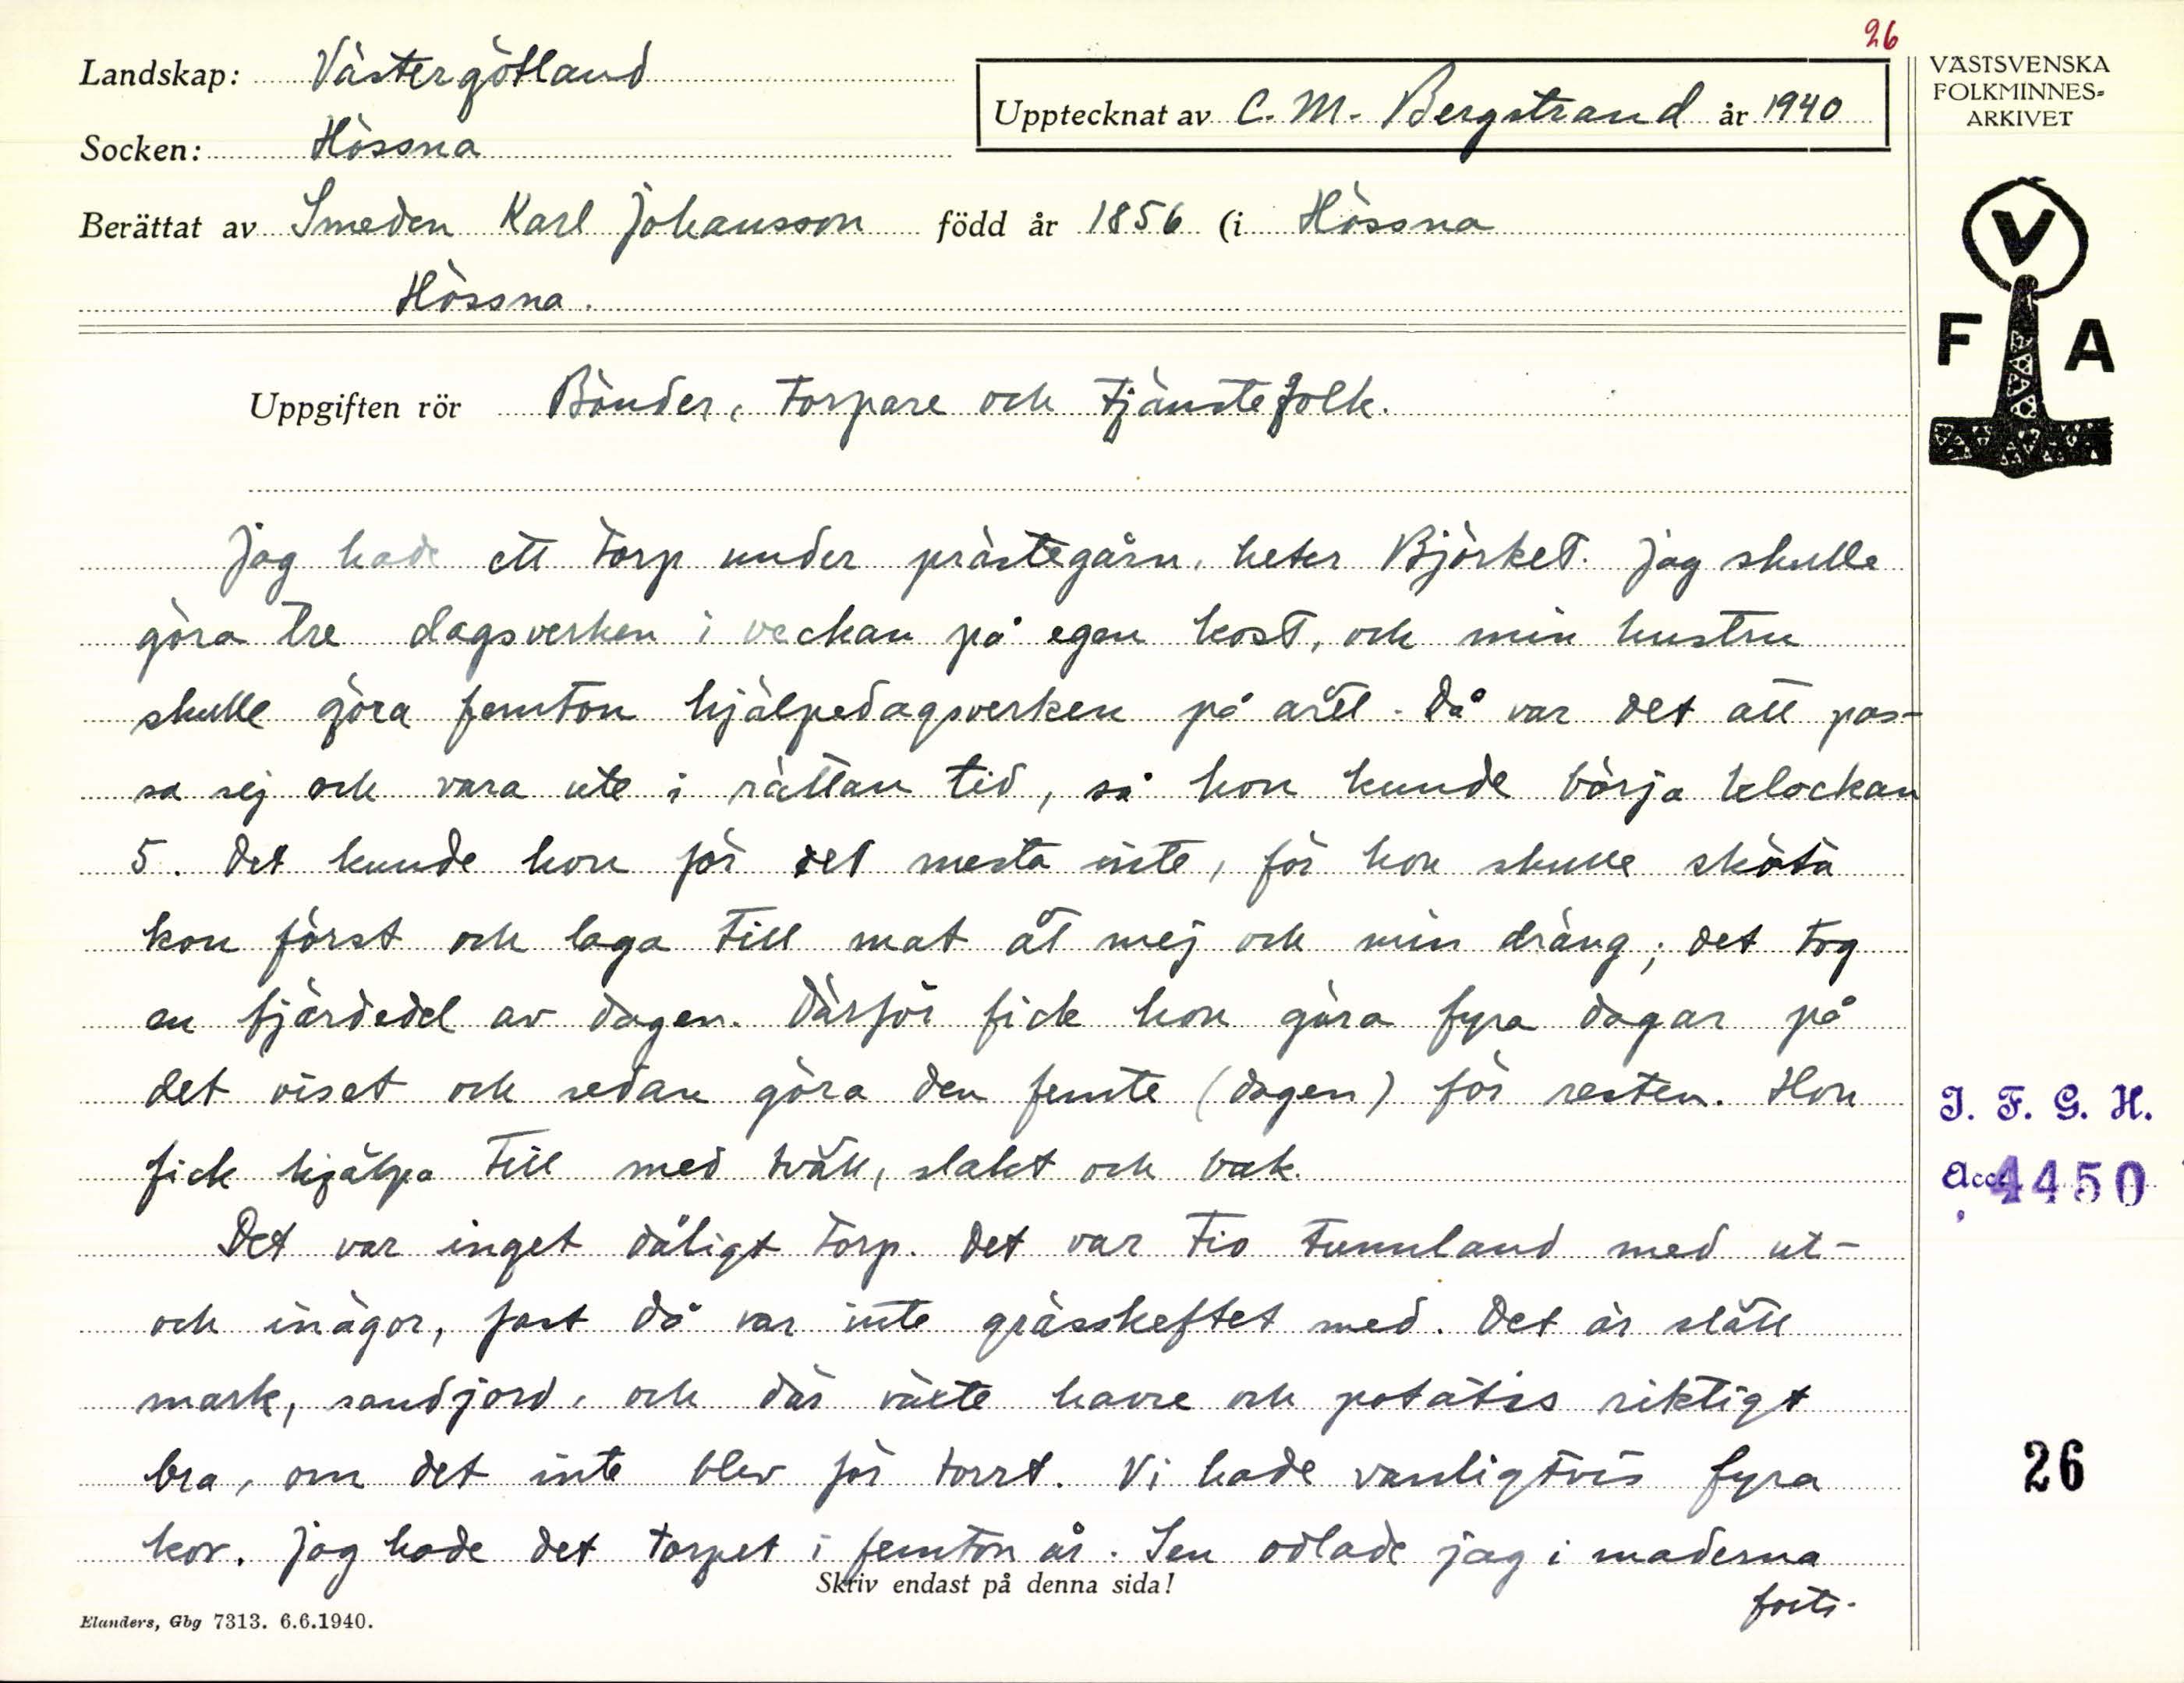 26
Landskap: Västergötland
Upptecknat av C. M. Bergstrand år 1940
Socken: Hössna
Berättat av Smeden Karl Johansson född år 1856 (i Hössna
Hössna.
Uppgiften rör Bönder, torpare och tjänstefolk.
Jag hade ett torp under prästegårn, heter Björket. Jag skulle
göra tre dagsverken i veckan på egen kost, och min hustru
skulle göra femton hjälpedagsverken på året. Då var det att pas-
sa sej och vara ute i rättan tid, så hon kunde börja klockan
5. Det kunde hon för det mesta inte, för hon skulle sköta
kon först och laga till mat åt mej och min dräng; det tog
en fjärdedel av dagen. Därför fick hon göra fyra dagar på
det viset och sedan göra den femte (dagen) för resten. Hon
fick hjälpa till med tvätt, slakt och bak.
Det var inget dåligt torp. Det var tio tunnland med ut-
och inägor, fast då var inte grässkeftet med. Det är slätt
mark, sandjord, och där växte havre och potatis riktigt
bra, om det inte blev för torrt. Vi hade vanligtvis fyra
kor. Jag hade det torpet i femton år. Sen odlade jag i maderna
forts.
Skriv endast på denna sida!
Elanders, Gbg 7313. 6.6.1940.
VÄSTSVENSKA
FOLKMINNES=
ARKIVET
V
F A
I. F. G. H.
Acc. 4450
26